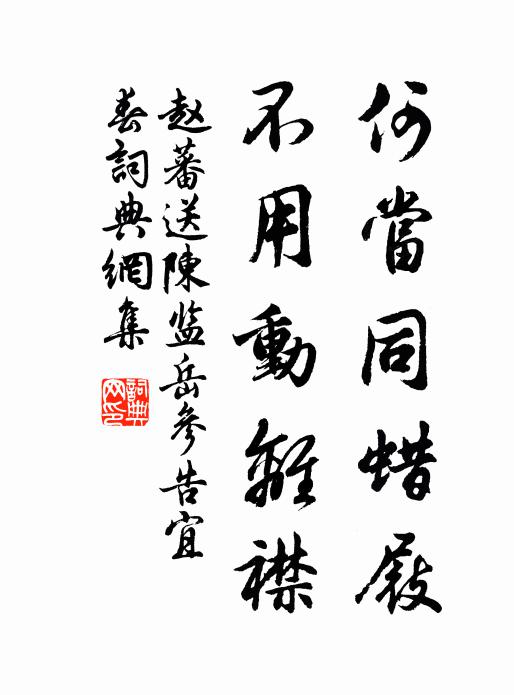 何當同蜡屐
不用動離襟
赵蕃送陳监岳參告宜
春詞典網集
詞典网印